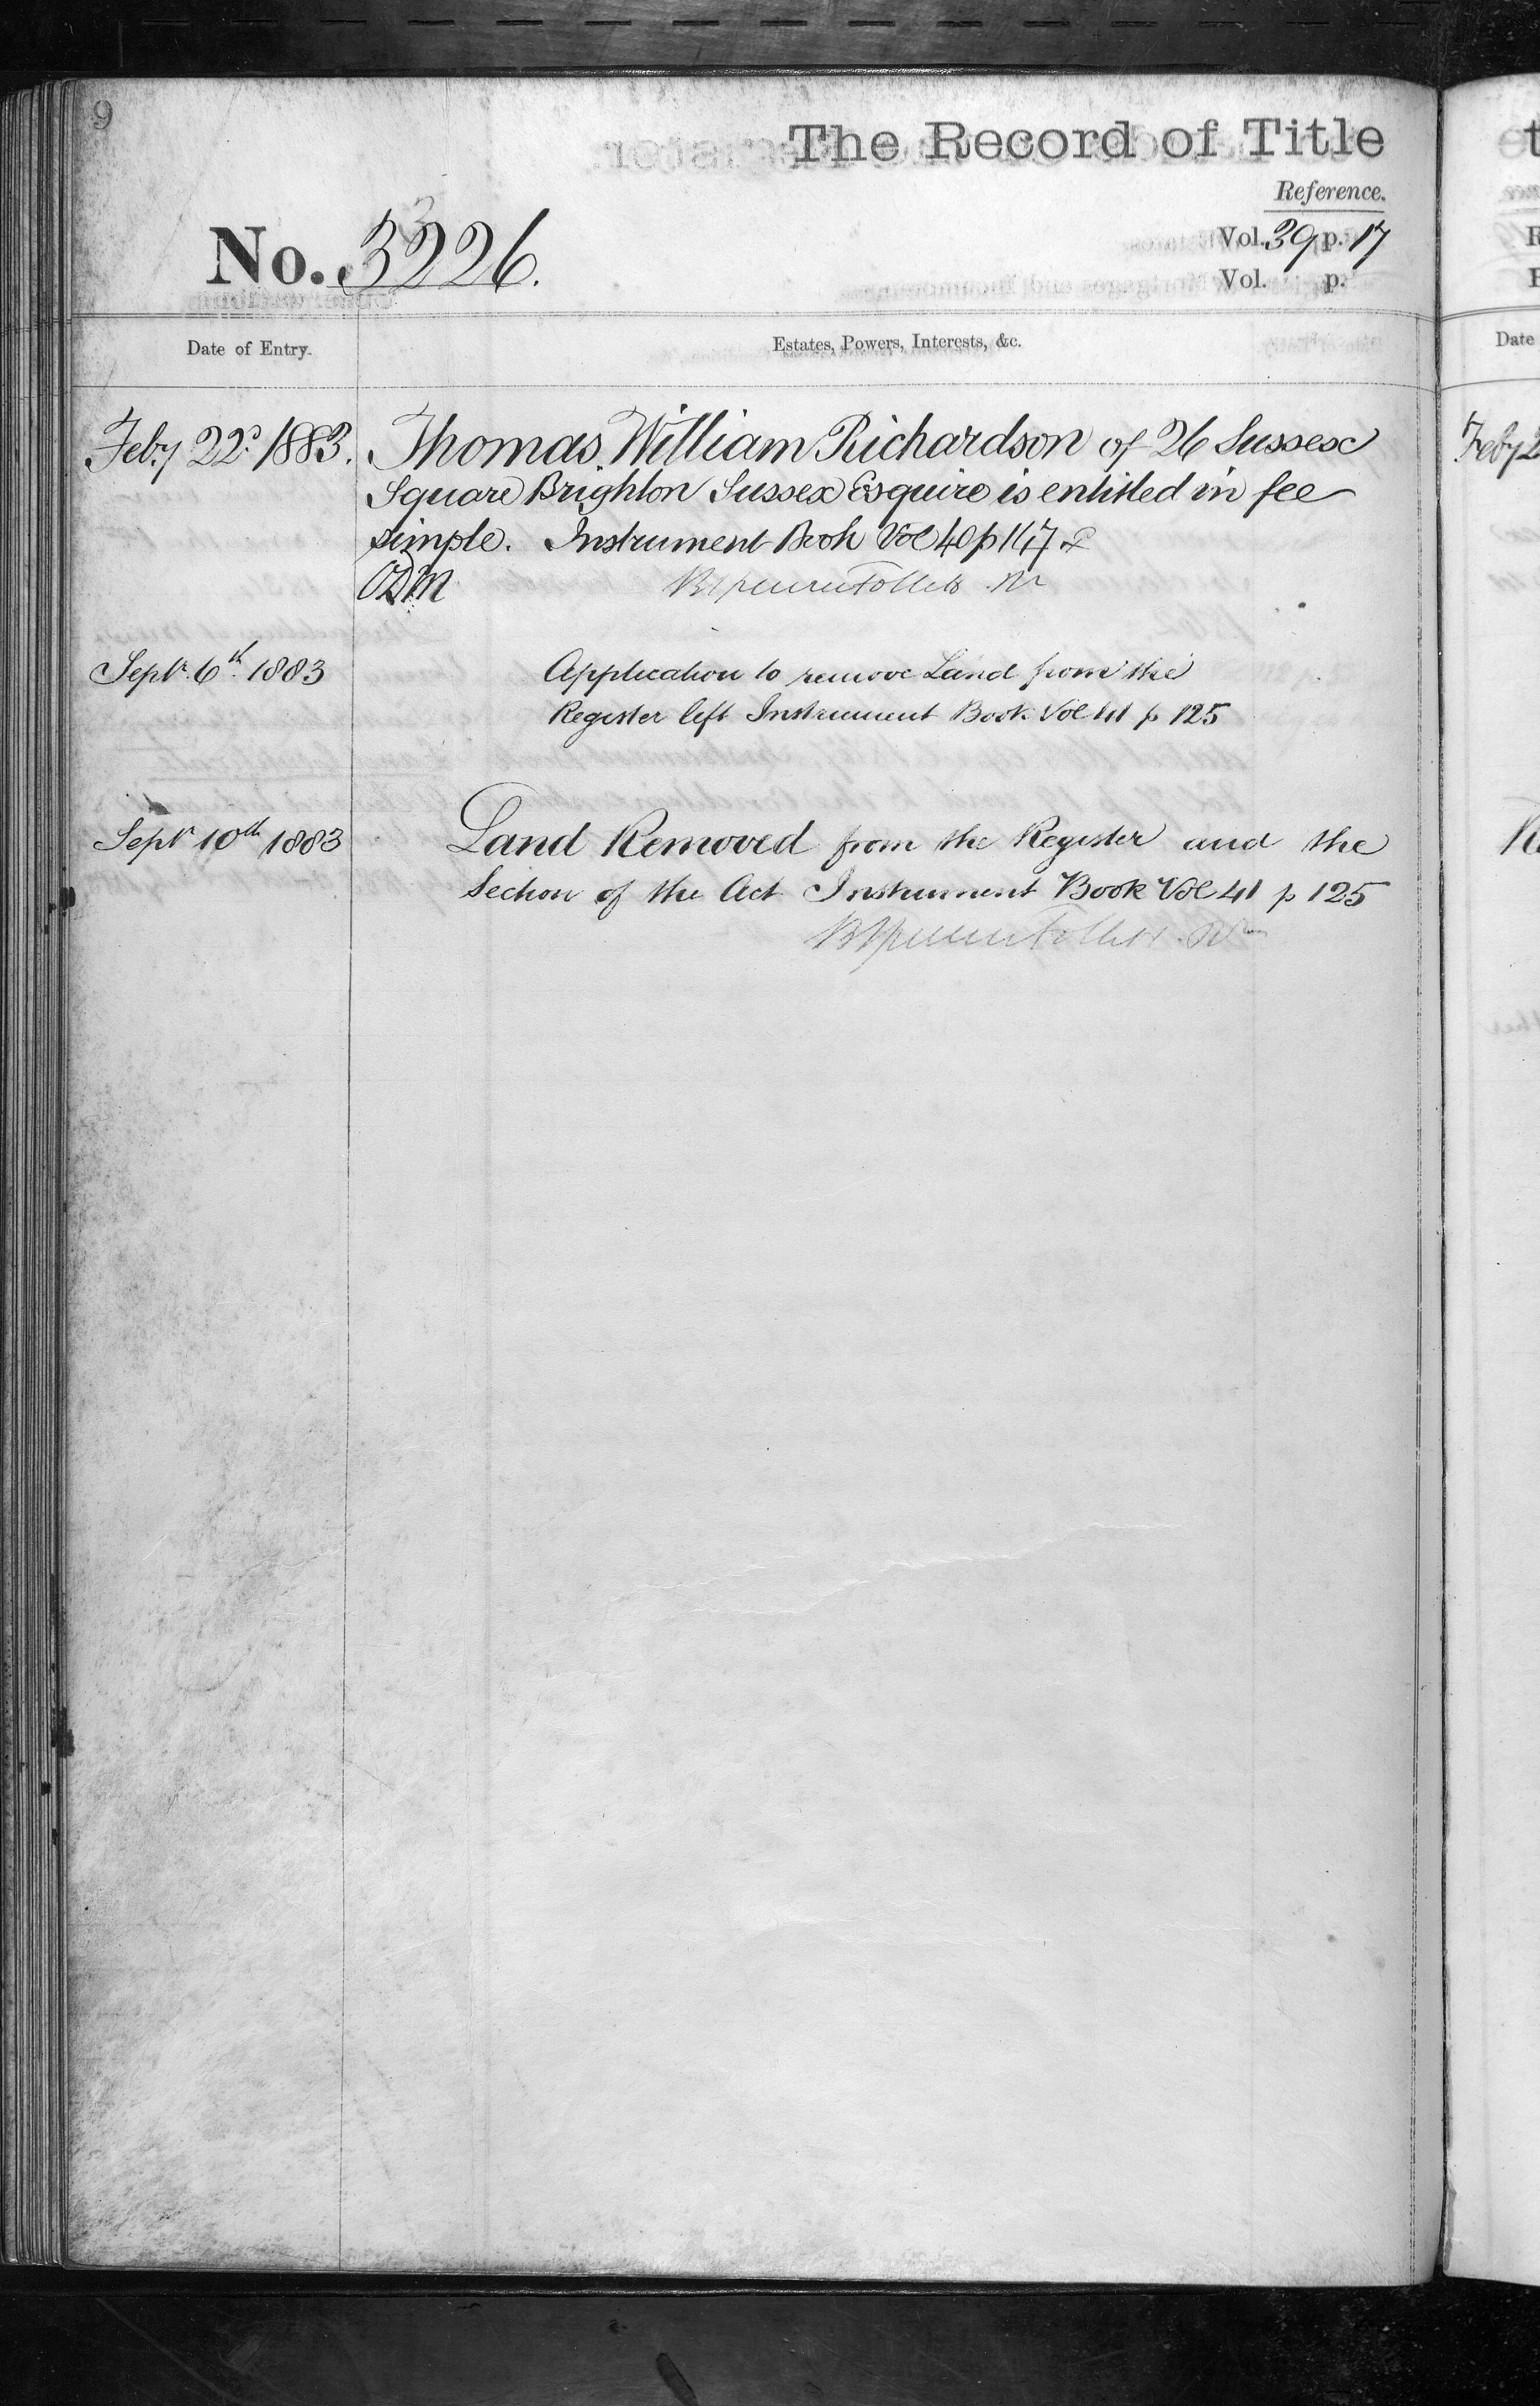 9
The Record of Title
Reference.
No. 3226.
Vol. 39 p. 17
Vol. p.
Date of Entry. Estates, Powers, Interests, &c.
Feby 22d 1883. Thomas William Richardson of 26 Sussex
Square Brighton Sussex Esquire is entitled in fee
simple. Instrument Book Vol 40 p 117
Sepr. 6th 1883 Application to remove Land from the
Register left Instrument Book Vol 41 p 125
Sepr 10th 1883 Land Removed from the Register and the
Section of the Act Instrument Book Vol 41 p 125
Date
Feby 2